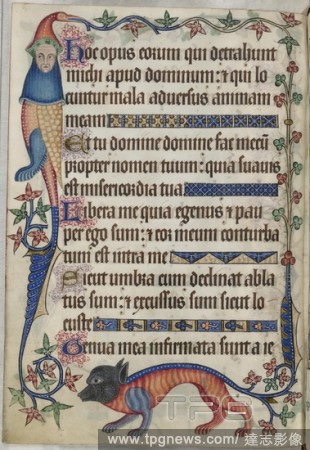 Hoc opus eorum qui detrahunt
michi apud dominum: & qui lo
cuntur mala adversus animam
meam
Et tu domine domine fac mecū
propter nomen tuum: quia suavis
est misericordia tua
Libera me quia egenus & pau
per ego sum: & cor meum conturba
tum est intra me
Sicut umbra cum declinat abla
tus sum: & excussus sum sicut lo
custe
Genua mea infirmata sunt a ie
TPG
www.tpgnews.com/ 達志影像